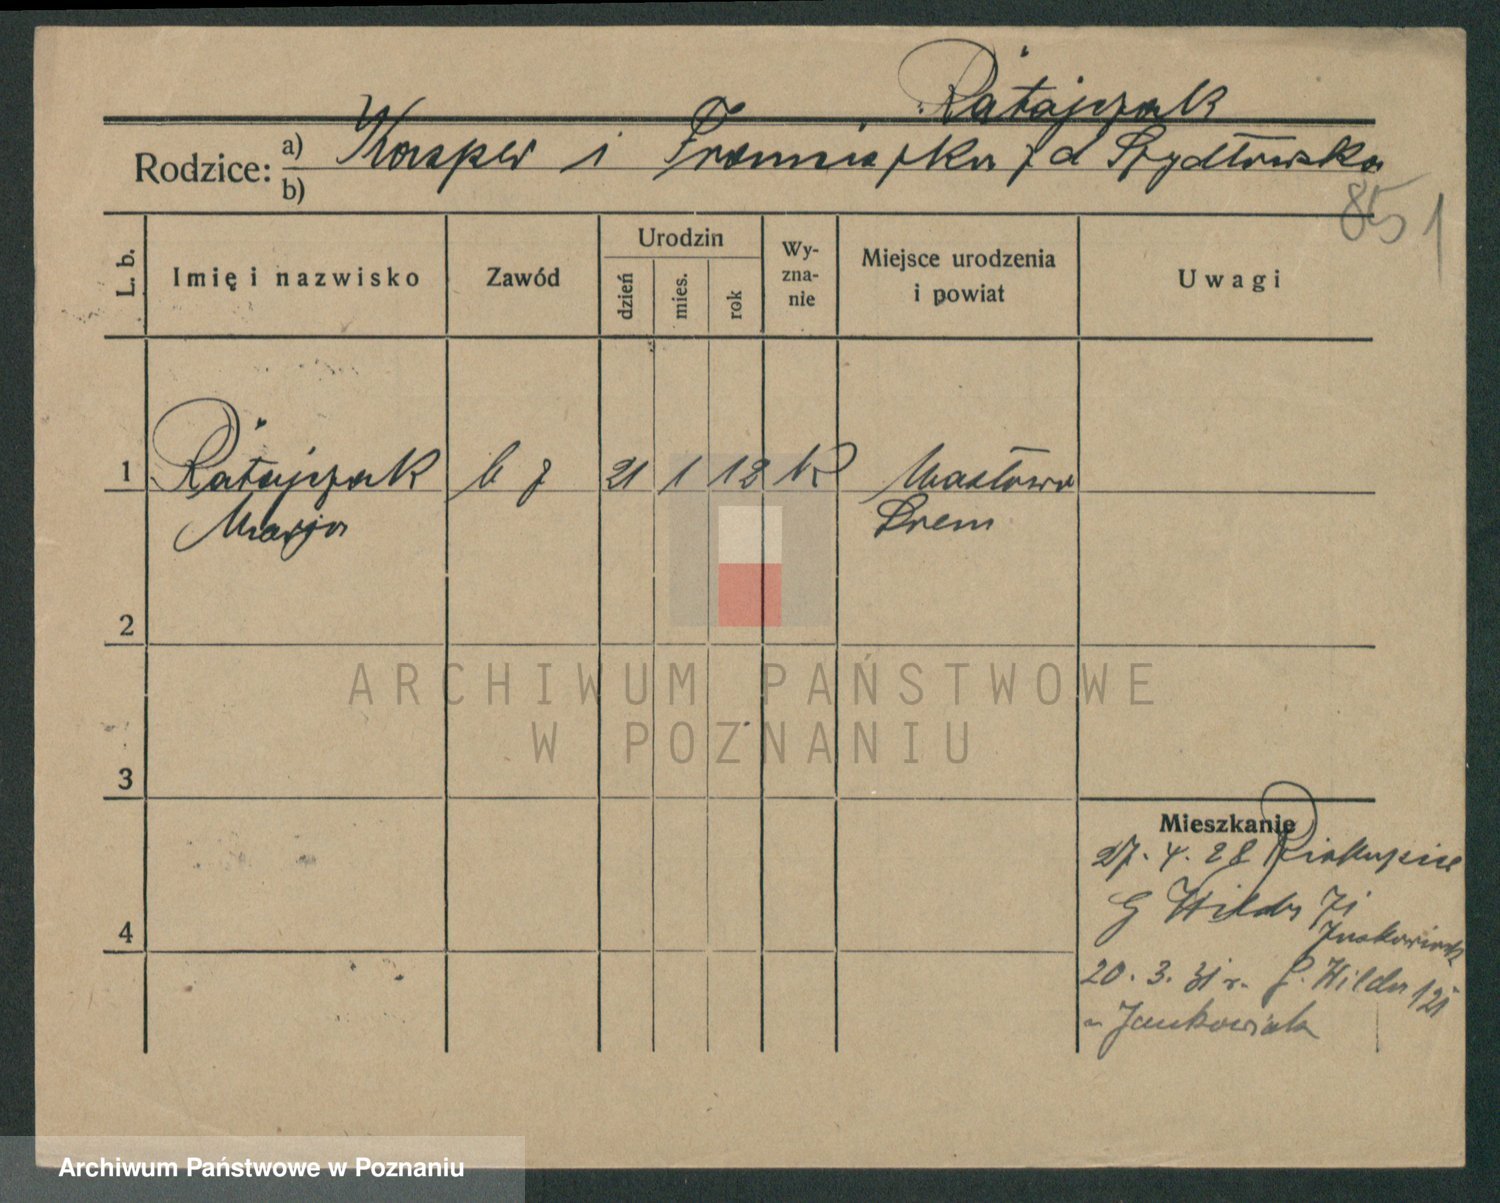 Ratajczak
Rodzice: a) Kasper i Franciszka z d Szydłowska
b)
851
L. b.
Imię i nazwisko
Zawód
Urodzin
dzień
mies.
rok
Wy-
zna-
nie
Miejsce urodzenia
i powiat
Uwagi
1 Ratajczak b z 21 1 12 K Masłowo
Marja Śrem
2
ARCHIWUM PAŃSTWOWE
W POZNANIU
3
Mieszkanie
27. 4. 28
4
G Wilda 71
Jankowiak
20. 3. 31 r. G. Wilda 121
u Jankowiak
Archiwum Państwowe w Poznaniu